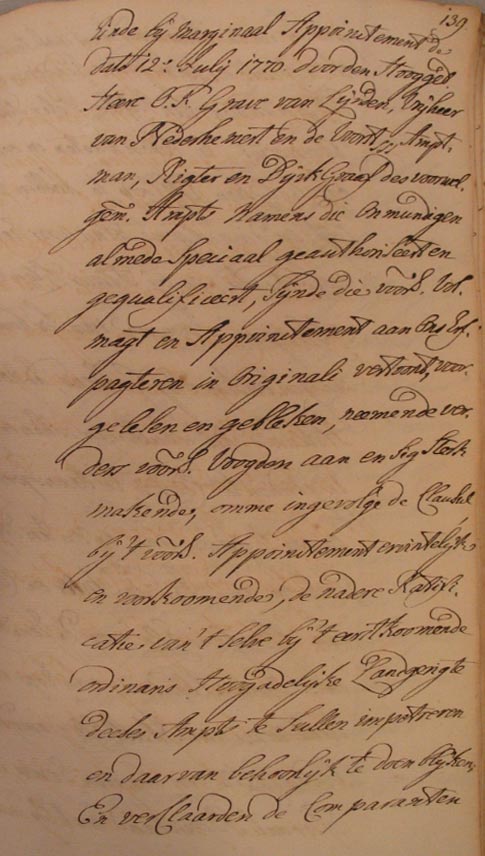 139
Ende bij Marginaal Appoinctement de
dato 12e Julij 1770 door den Hooggeb.
Heere O. F. Grave van Lijnden, Vrijheer
van Nederhemert en de Voorst &c, Ampt-
man, Rigter en Dijk Graef des voorml.
gem. Ampts Namens die Onmundigen
almede Speciaal geauthoriseert en
gequalificeert, Sijnde die voors. Vol-
magt en Appoinctement aan Ons Erf-
pagteren in Originali vertoont, voor-
gelesen en gebleken, neemende ver-
ders voors. Voogden aan en Sig Sterk
makende, omme ingevolge de Clausul
bij 't voors. Appoinctement
en voorkoomende, de nadere Ratifi-
catie van 't Selve bij 't eerstkoomende
ordinaris Hoogadelijke Landgerigte
deeses Ampts te Sullen impetreren
en daar van behoorlijk te doen blijken,
En verclaarden de Comparanten